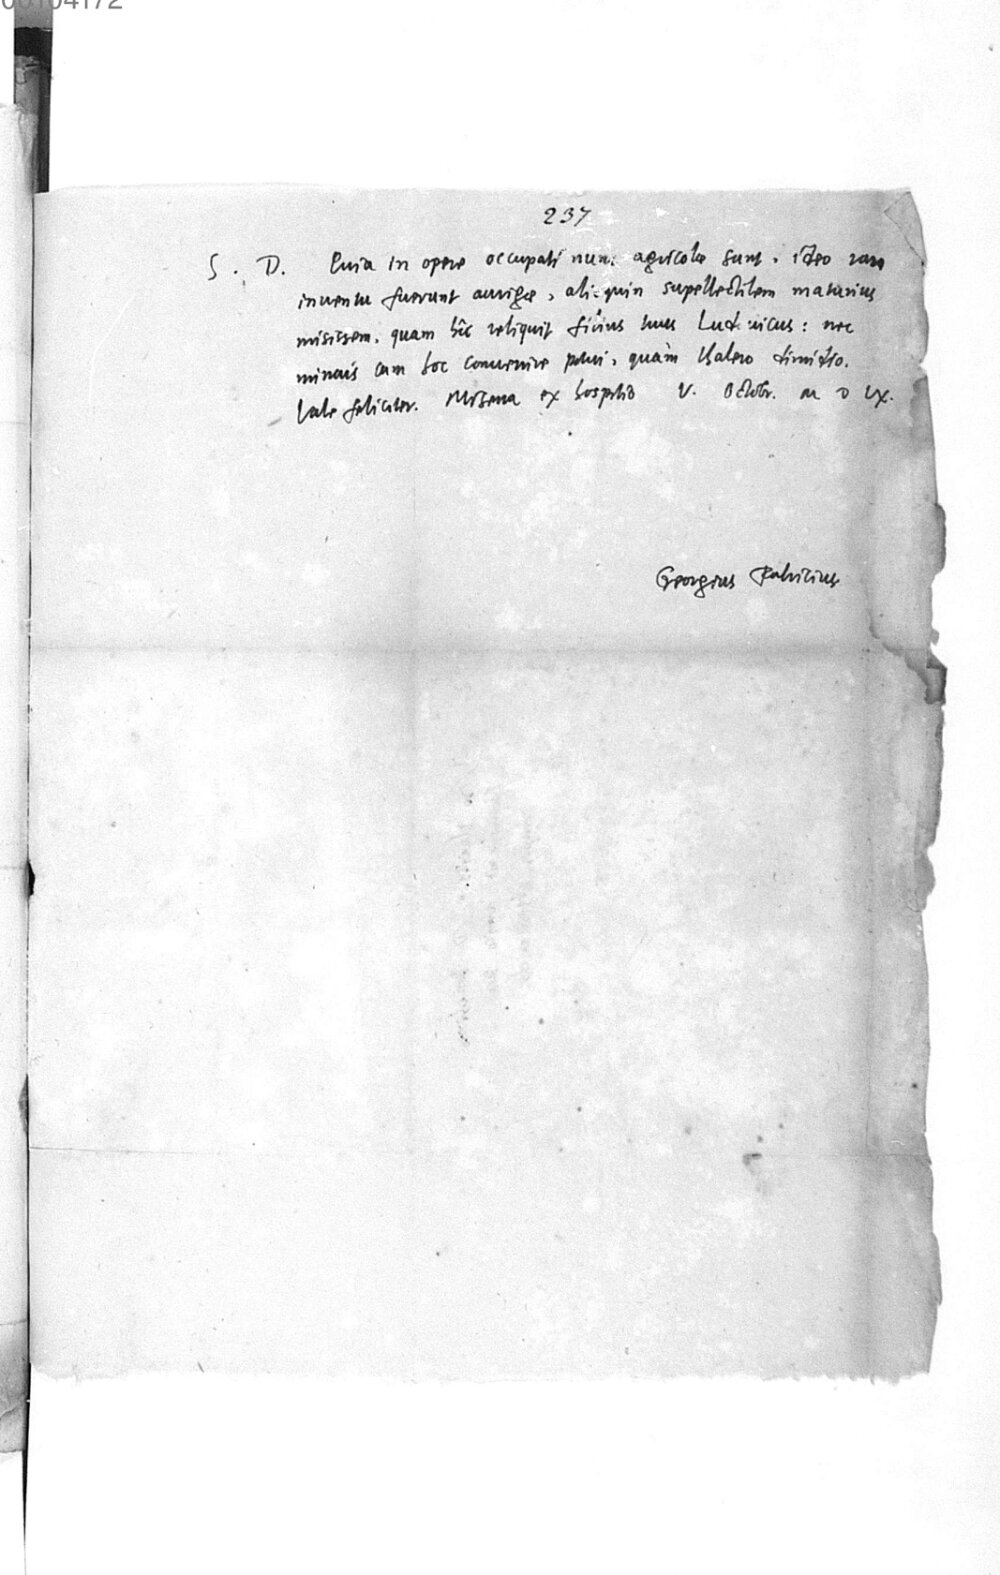 00104172
237
S. D. Quia in opere occupati nunc agricolæ sunt, ideo rari
inuentu fuerunt aurigæ, alioquin supellectilem maturius
misissem, quam hîc reliquit filius tuus Ludouicus: nec
minoris eam hoc conuenire potui, quàm thalero dimidio.
Vale feliciter. Misena ex hospitio V. Octobr. M D LX.
Georgius Fabricius